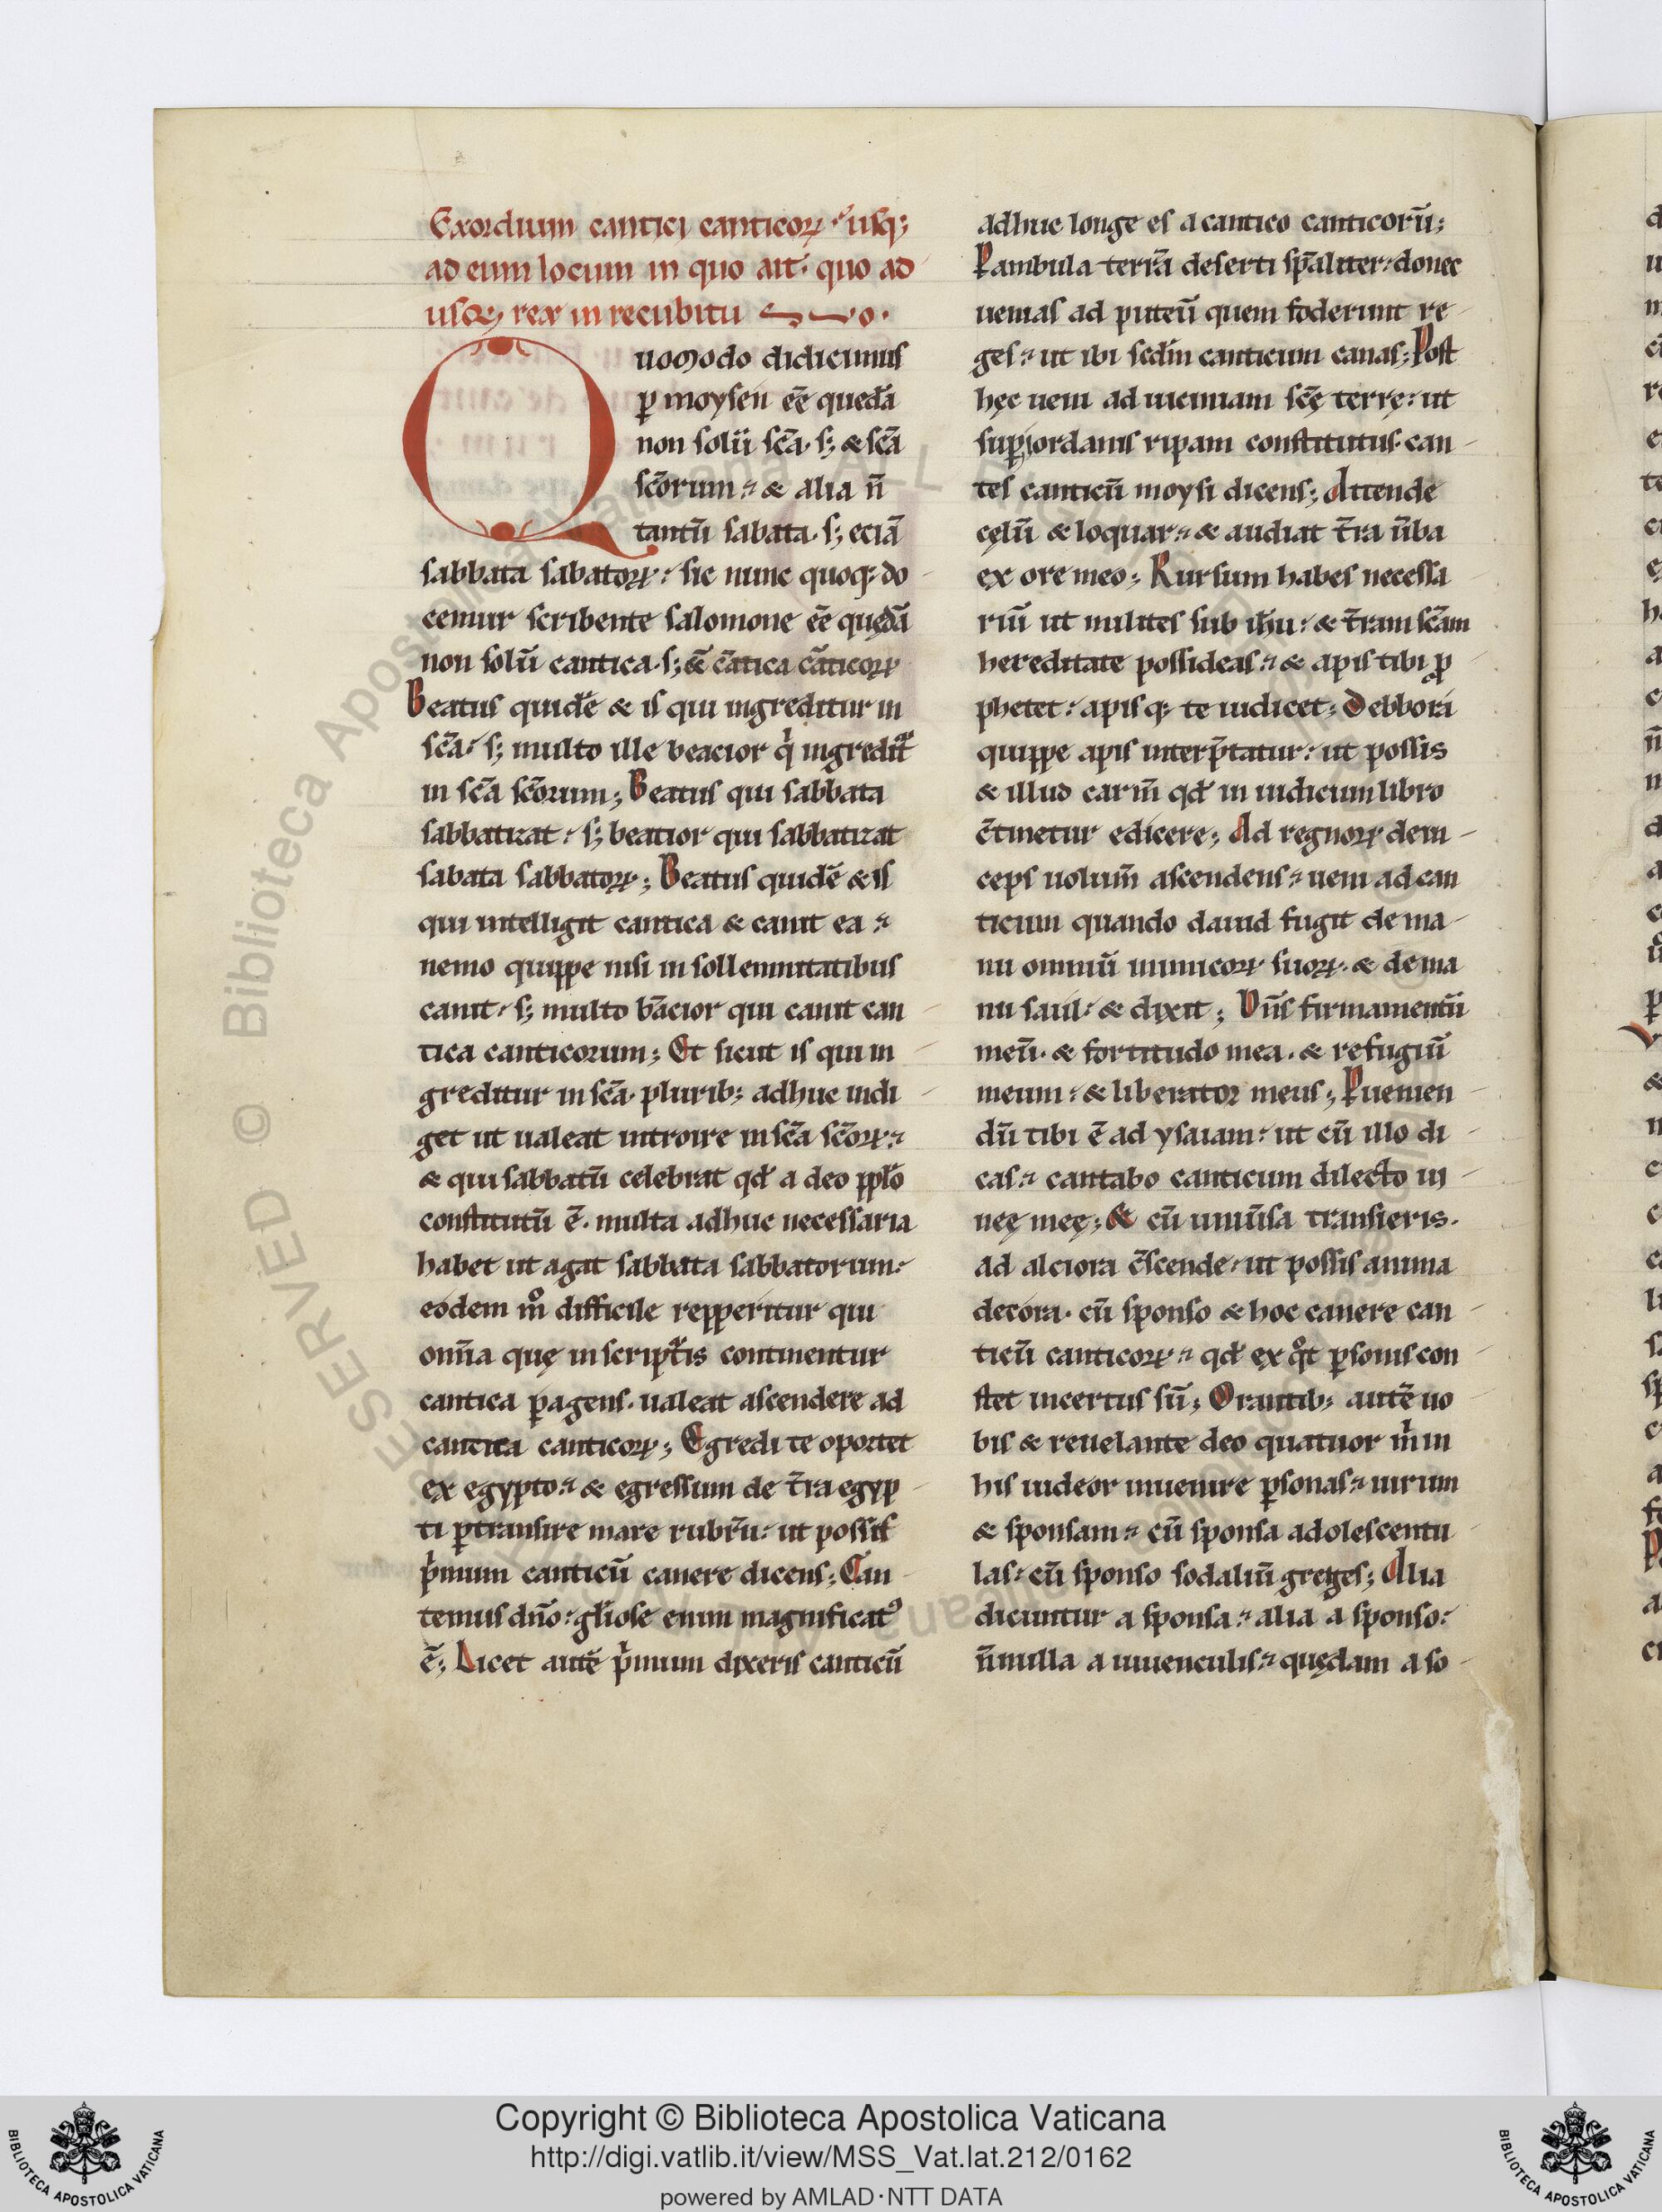 Exordium cantici canticoꝝ usq;
ad eum locum in quo ait· quo ad
usq; rex in recubitu
Quomodo didicimus
ꝑ moysen eē quedā
non solū scā· s; & scā
scōrum & alia n̄
tantū sabata· s; eciā
sabbata sabatoꝝ: sic nunc quoq; do
cemur scribente salomone eē quędā
non solū cantica· s; & cātica cāticoꝝ
Beatus quidē & is qui ingreditur in
scā: s; multo ille beacior qͥ ingredit᷑
in scā scōrum; Beatus qui sabbata
sabbatizat: s; beatior qui sabbatizat
sabata sabbatoꝝ; Beatus quidē & is
qui intelligit cantica & canit ea
nemo quippe nisi in sollemnitatibus
canit: s; multo bācior qui canit can
tica canticorum; Et sicut is qui in
greditur in scā· plurib; adhuc indi
get ut ualeat introire in scā scōꝝ:
& qui sabbatū celebrat qđ a deo pp̄lo
constitutū ē· multa adhuc necessaria
habet ut agat sabbata sabbatorum:
eodem mͦ difficile repperitur qui
om̄ia quę in scripturis continentur
cantica ꝑagens· ualeat ascendere ad
cantica canticoꝝ; Egredi te oportet
ex egypto: & egressum de t̄ra egyp
ti ꝑtransire mare rubrū: ut possis
pͥmum canticū canere dicens; Can
temus dn̄o: gl̄iose enim magnificatꝰ
ē; Licet autē pͥmum dixeris canticū
adhuc longe es a cantico canticorū;
Pambula terrā deserti sp̄aliter: donec
uenias ad puteū quem foderunt re
ges: ut ibi scđm canticum canas; Post
hęc ueni ad uiciniam scę̄ terrę: ut
suꝑ iordanis ripam constitutus· can
tes canticū moysi dicens; Attende
cęlū & loquar: & audiat t̄ra ūba
ex ore meo; Rursum habes necessa
riū ut milites sub ih̄u: & t̄ram scām
hereditate possideas: & apis tibi ꝓ
phetet: apis q; te iudicet; Debbora
quippe apis interp̄tatur: ut possis
& illud carm̄ qđ in iudicum libro
c̄tinetur edicere; Ad regnoꝝ dein
ceps uolum̄ ascendens: ueni ad can
ticum quando dauid fugit de ma
nu omniū inimicoꝝ suoꝝ· & de ma
nu saul: & dixit; Dn̄s firmamentū
meū· & fortitudo mea· & refugiū
meum: & liberator meus; Pueniēn
dū tibi ē ad ysaiam: ut cū illo di
cas: cantabo canticum dilecto ui
neę meę; & cū uniūsa transieris·
ad alciora c̄scende: ut possis anima
decora· cū sponso & hoc canere can
ticū canticoꝝ: qđ ex qͦt ꝑsonis con
stet incertus sū; Orantib; autē uo
bis & reuelante deo quatuor mͥ in
his uideor inuenire ꝑsonas: uirum
& sponsam: cū sponsa adolescentu
las: cū sponso sodaliū greges; Alia
dicuntur a sponsa: alia a sponso:
n̄nulla a iuuenculis: quędam a so
Copyright © Biblioteca Apostolica Vaticana
http://digi.vatlib.it/view/MSS_Vat.lat.212/0162
powered by AMLAD·NTT DATA
BIBLIOTECA APOSTOLICA VATICANA
BIBLIOTECA APOSTOLICA VATICANA